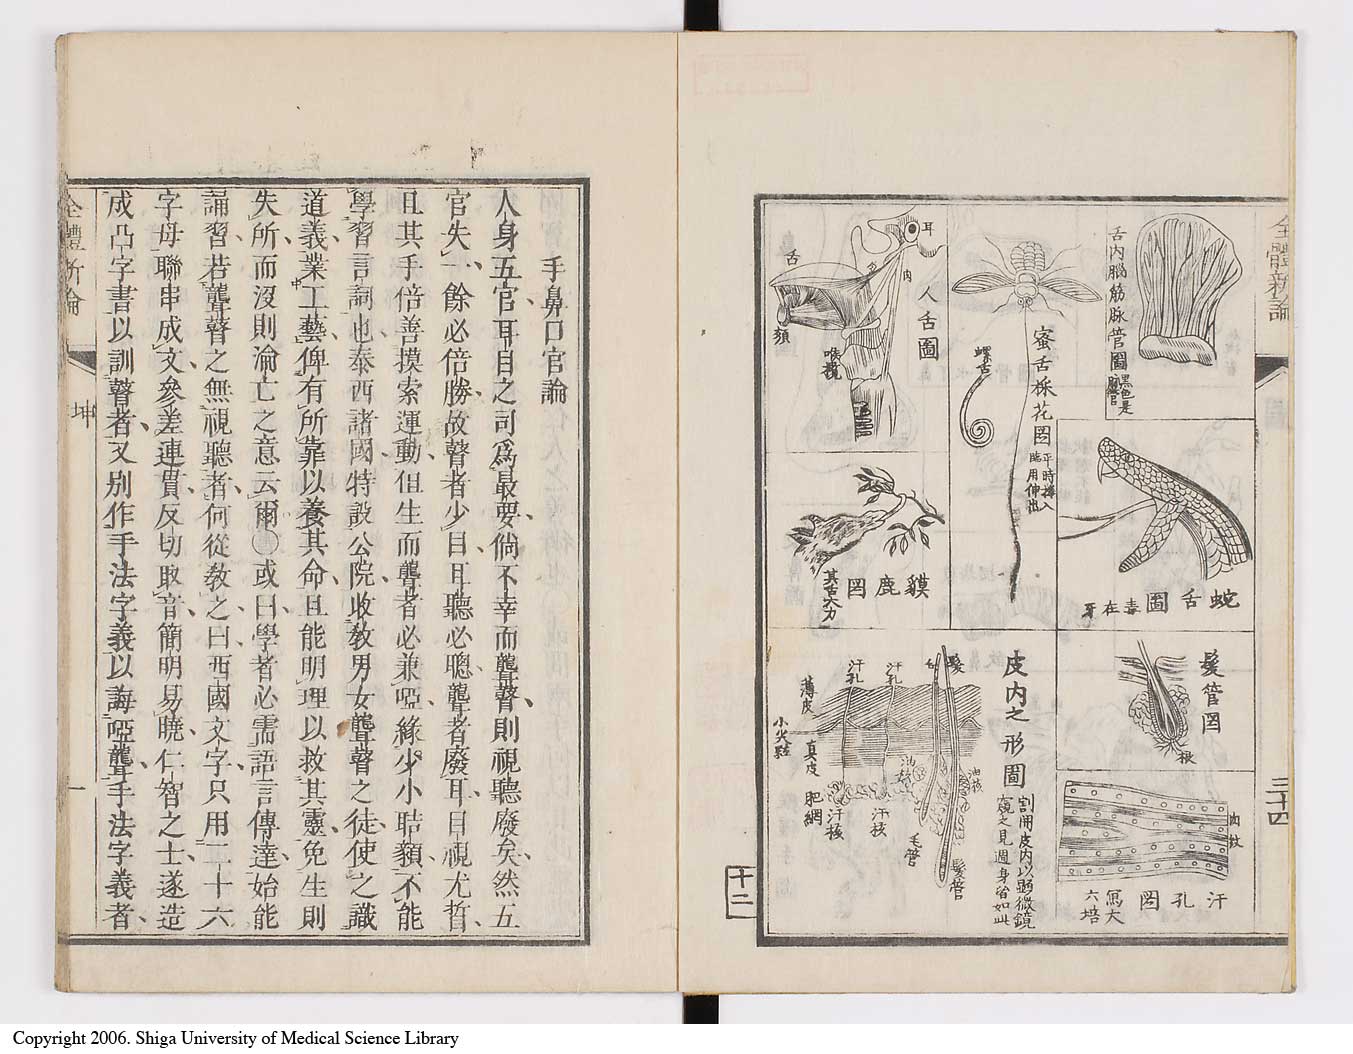 全體新論
三十四
舌內腦筋脉管圖
黑色是
人舌圖
耳
舌
肉
頦
喉
蜜舌採花圖
平時捲入
臨用伸出
螺舌
蛇舌圖
毒在牙
貘鹿圖
其舌大力
髮管圖
根
皮內之形圖
割開皮內以顯微鏡
窺之見週身皆如此
汗孔
汗孔
毛
髮
薄皮
小尖粒
真皮
肥網
油核
油核
汗核
汗核
毛管
髮管
汗孔圖
寫大
六培
肉紋
十二
手鼻口官論
人身五官耳目之司爲最要倘不幸而聾瞽則視聽廢矣然五
官失一餘必倍勝故瞽者少目耳聽必聰聾者廢耳目視尤哲
且其手倍善摸索運動但生而聾者必兼啞緣少小聐頟不能
學習言詞也泰西諸國特設公院收敎男女聾瞽之徒使之識
道義業工藝俾有所靠以養其命且能明理以救其靈免生則
失所而沒則淪亡之意云爾〇或曰學者必需語言傳達始能
誦習若聾瞽之無視聽者何從敎之曰西國文字只用二十六
字母聯串成文參差連貫反切取音簡明易曉仁智之士遂造
成凸字書以訓瞽者又別作手法字義以誨啞聾手法字義者
全體新論
坤
一
Copyright 2006. Shiga University of Medical Science Library